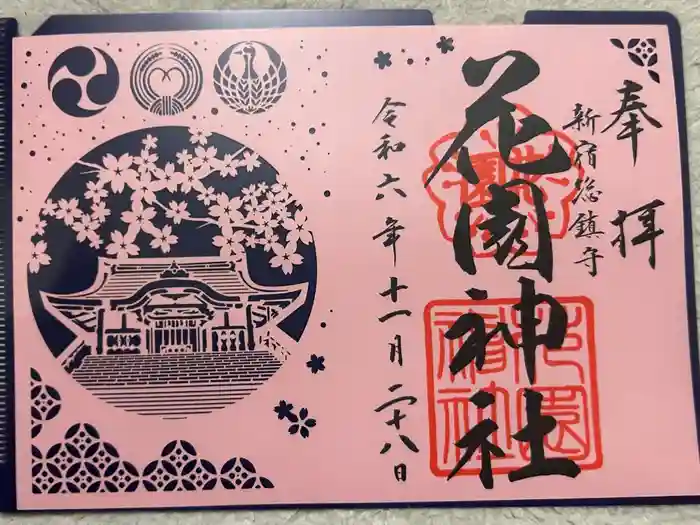 奉拝
新宿総鎮守
花園神社
令和六年十一月二十八日